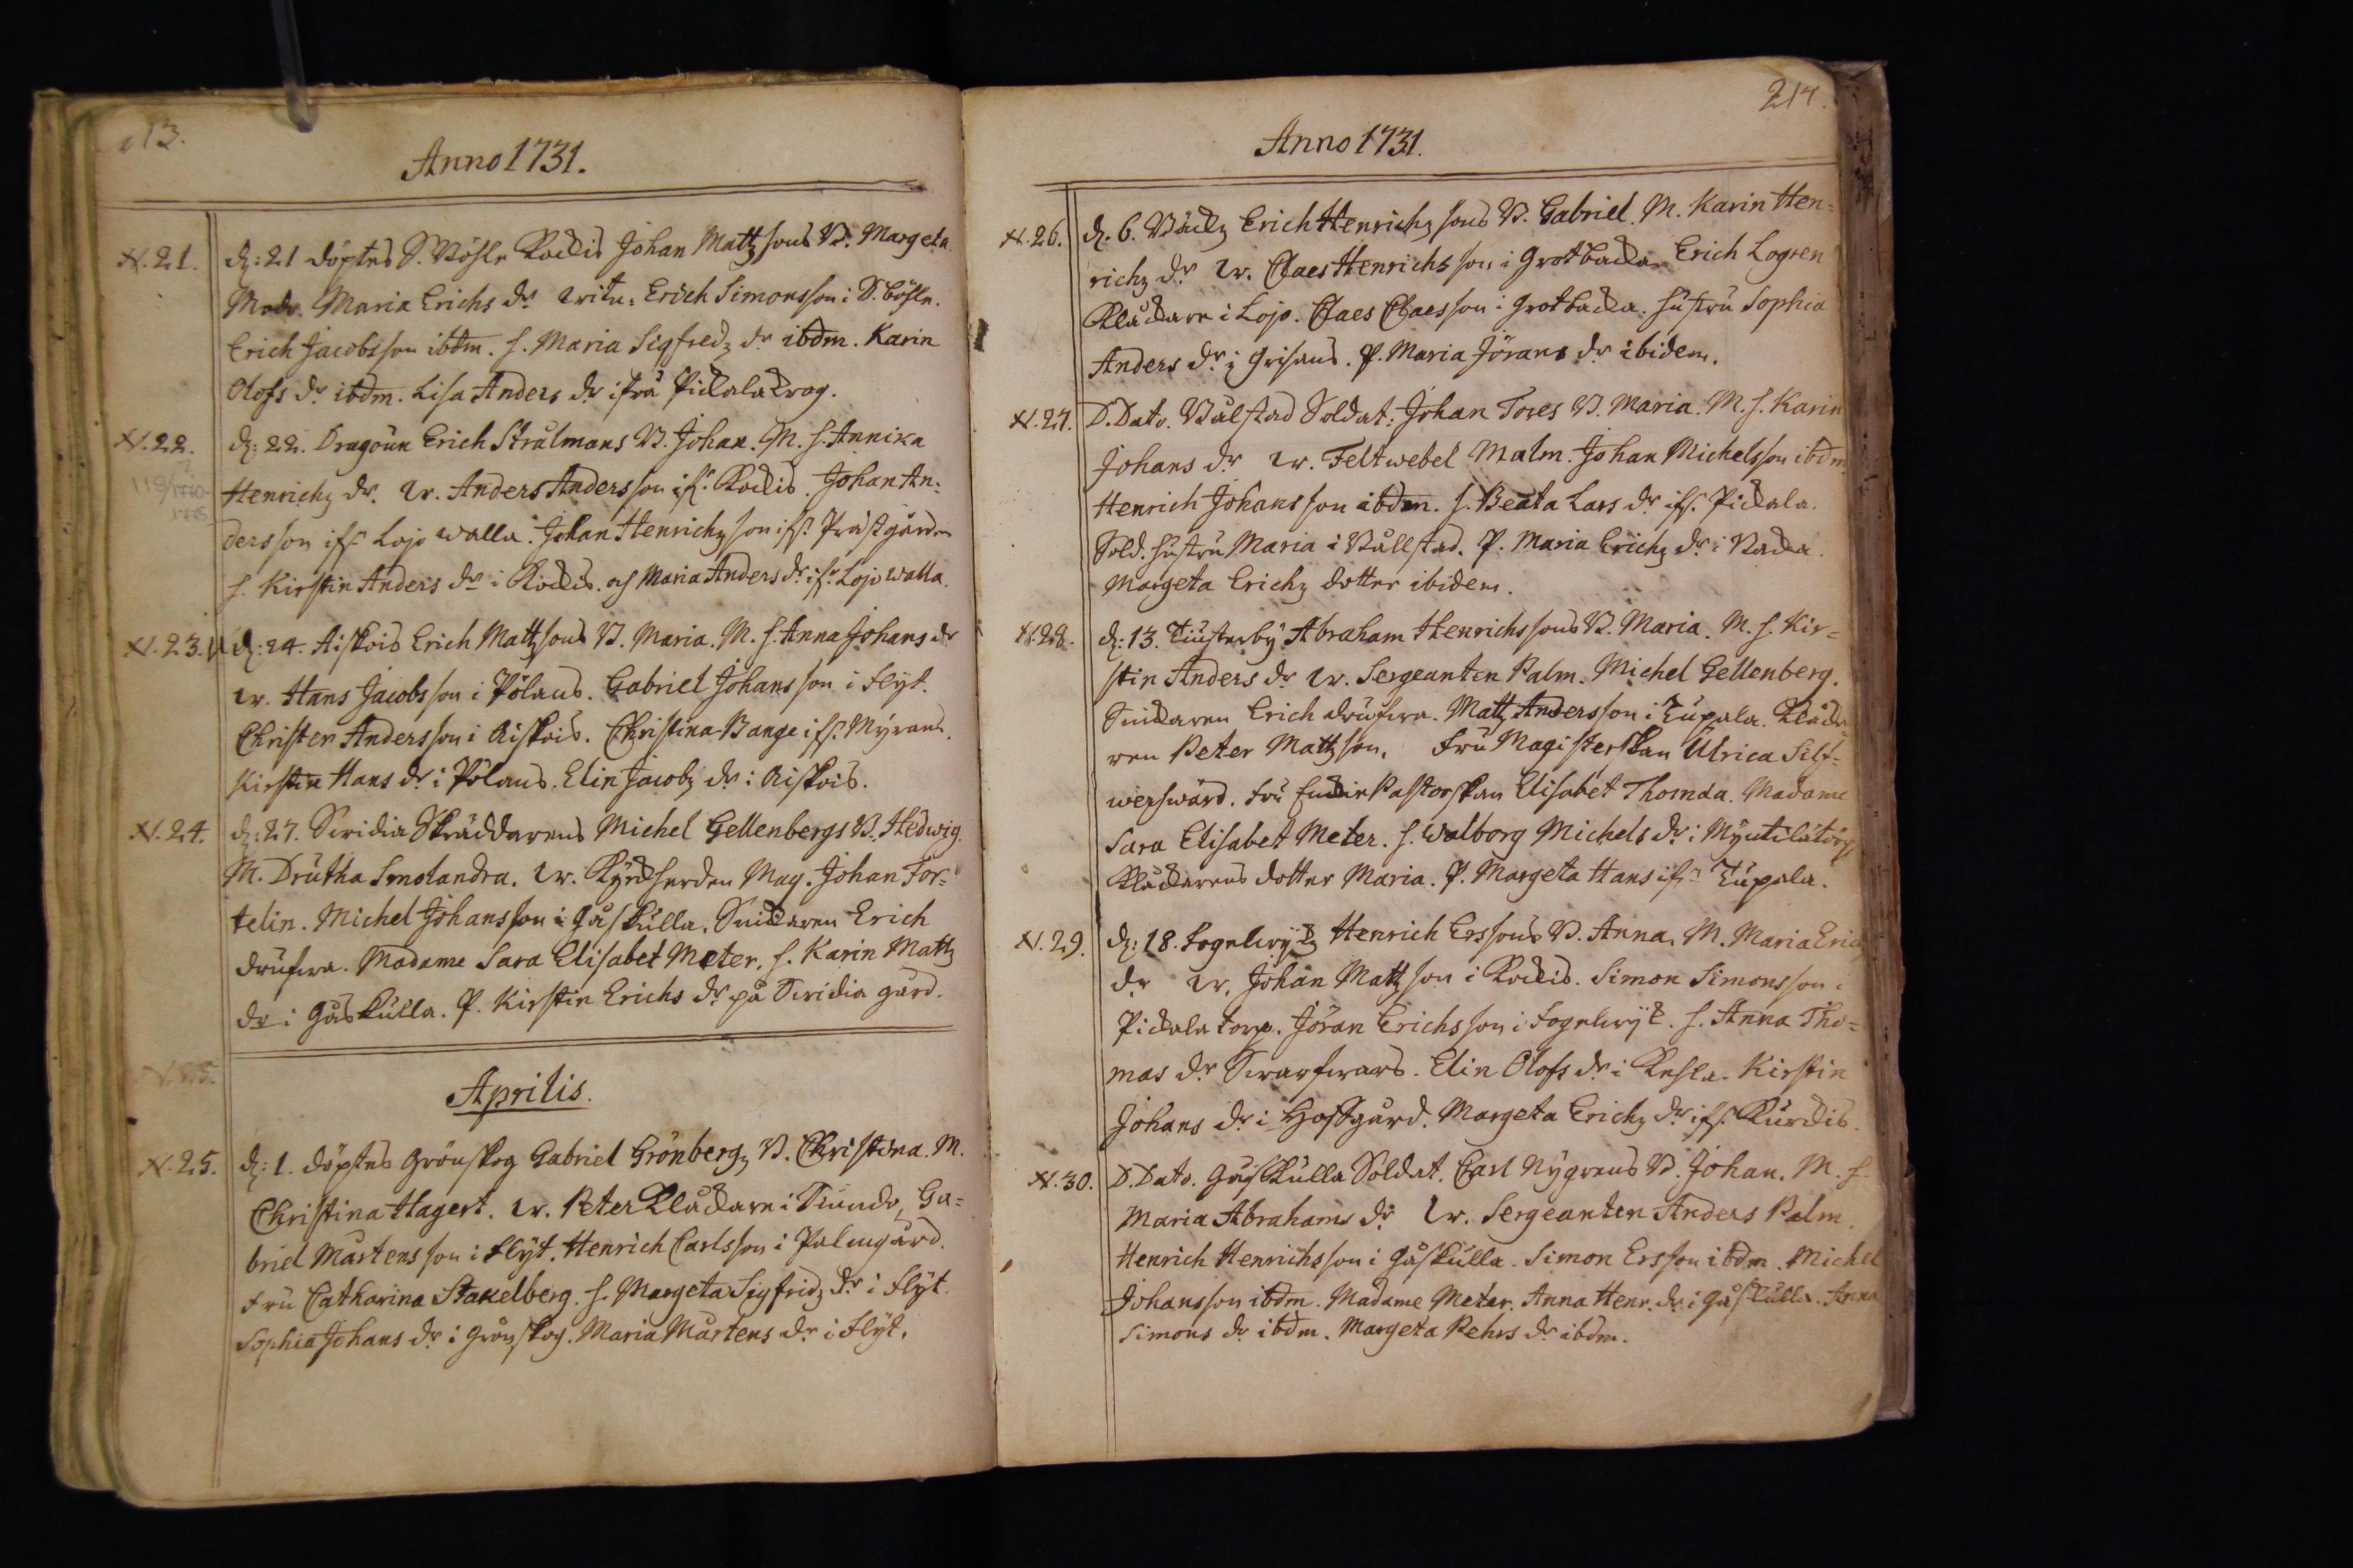 213.
Anno 1731.
N. 21. d: 21 döptes S. Böhle Kockis Johan Mattzsons B. Margeta.
Modr. Maria Erichs dr. witn: Erich Simonsson i S. Böhle.
Erich Jacobsson ibdm. h. Maria Sigfredz dr ibdm. Karin
Olofs dr ibdm. Lisa Anders dr ifrå Pickalakrog.
N. 22. d: 22. Dragoun Erich Strålmans B. Johan. M. h. Annika
Henrichz dr. w. Anders Andersson ifr. Kockis. Johan An-
dersson ifr Lojo walla. Johan Henrichzson ifr. Prästgården
h. Kirstin Anders dr i Kockis. och Maria Anders dr ifr. Lojo walla.
N. 23. d: 24. Aiskois Erich Mattzsons B. Maria. M. h. Anna Johans dr
w. Hans Jacobsson i Pölans. Gabriel Johansson i Flyt.
Christer Andersson i Aiskois. Christina Bange ifr. Myrans.
Kirstin Hans dr i Pölans. Elin Jacobz dr i Aiskois.
N. 24. d: 27. Svidia Skräddarens Michel Gellenbergs B. Hedwig.
M. Drutha Smolandra. w. Kyrckherden Mag. Johan For-
telin. Michel Johansson i Gåskulla. Snickaren Erich
drufwa. Madame Sara Elisabet Meter. h. Karin Mattz
dr i Gåskulla. P. Kirstin Erichs dr på Svidia gård.
Aprilis.
N. 25. d: 1. döptes Grönskog Gabriel Grönbergz B. Christina. M.
Christina Hagert. w. Peter Klåckare i Siundo, Ga-
briel Mårtensson i Flyt. Henrich Carlsson i Palmgård.
Fru Catharina Stakelberg. h. Margeta Sigfridz dr i Flyt.
Sophia Johans dr i Grönskog. Maria Mårtens dr i Flyt.
214.
Anno 1731.
N. 26. d: 6. Bäckz Erich Henrichzsons B. Gabriel. M. Karin Hen-
richz dr w. Claes Henrichsson i Grotbacka. Erich Logren
Klåckare i Lojo. Claes Claesson i Grotbacka. hustru Sophia
Anders dr i Grisans. P. Maria Jörans dr ibidem.
N. 27. D. Dato. Bålstad Soldat: Johan Tores B. Maria. M. h. Karin
Johans dr w. Feltwebel Malm. Johan Michelsson ibdm
Henrich Johansson ibdm. h. Beata Lars dr ifr. Pickala.
Sold. hustru Maria i Bållstad. P. Maria Erichz dr i Backa.
Margeta Erichz dotter ibidem.
N. 28. d: 13. Tiusterby Abraham Henrichssons B. Maria. M. h. Kir-
stin Anders dr w. Sergeanten Palm. Michel Gellenberg.
Snickaren Erich drufwa. Mattz Andersson i Tupala. Klåcka
ren Peter Mattzson. Fru Magisterskan Ulrica Silf-
werswärd. Fru Pastorskan Elisabet Thornda. Madame
Sara Elisabet Meter. h. Walborg Michels dr i
Klåckarens dotter Maria. P. Margeta Hans ifr Tupala.
N. 29. d: 18. Fogelwykz Henrich Erssons B. Anna. M. Maria Erichz
dr w. Johan Mattzson i Kockis. Simon Simonsson i
Pickala torp. Jöran Erichsson i Fogelwyk. h. Anna Tho-
mas dr Swarfwars. Elin Olofs dr i Kehla. Kirstin
Johans dr i Hofgård. Margeta Erichz dr ifr. Kurckis.
N. 30. D. Dato. Gåskulla Soldat. Carl Nygrens B. Johan. M. h.
Maria Abrahams dr w. Sergeanten Anders Palm.
Henrich Henrichsson i Gåskulla. Simon Ersson ibdm. Michel
Johansson ibdm. Madame Meter. Anna Henr. dr i Gåskulla. Anna
Simons dr ibdm. Margeta Pehrs dr ibdm.